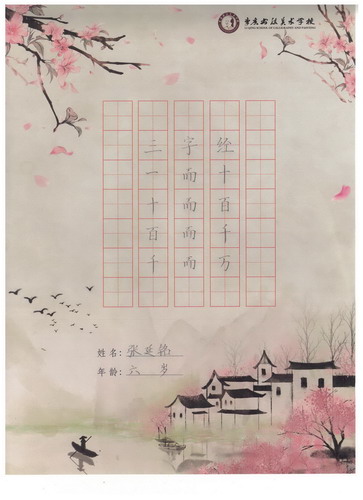 书法美术学校
SCHOOL OF CALLIGRAPHY AND PAINTING
经十百千万
字而而而而
三一十百千
姓名：张
年龄：六 岁